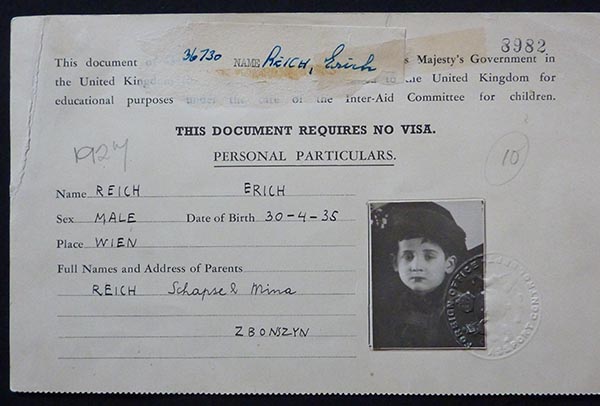 8982
36730 NAME REICH, Erich
This document of s Majesty's Government in
the United Kingdom the United Kingdom for
educational purposes under the care of the Inter-Aid Committee for children.
THIS DOCUMENT REQUIRES NO VISA.
PERSONAL PARTICULARS.
1927
10
Name REICH ERICH
Sex MALE Date of Birth 30-4-35
Place WIEN
Full Names and Address of Parents
REICH Schapse & Mina
ZBONSZYN